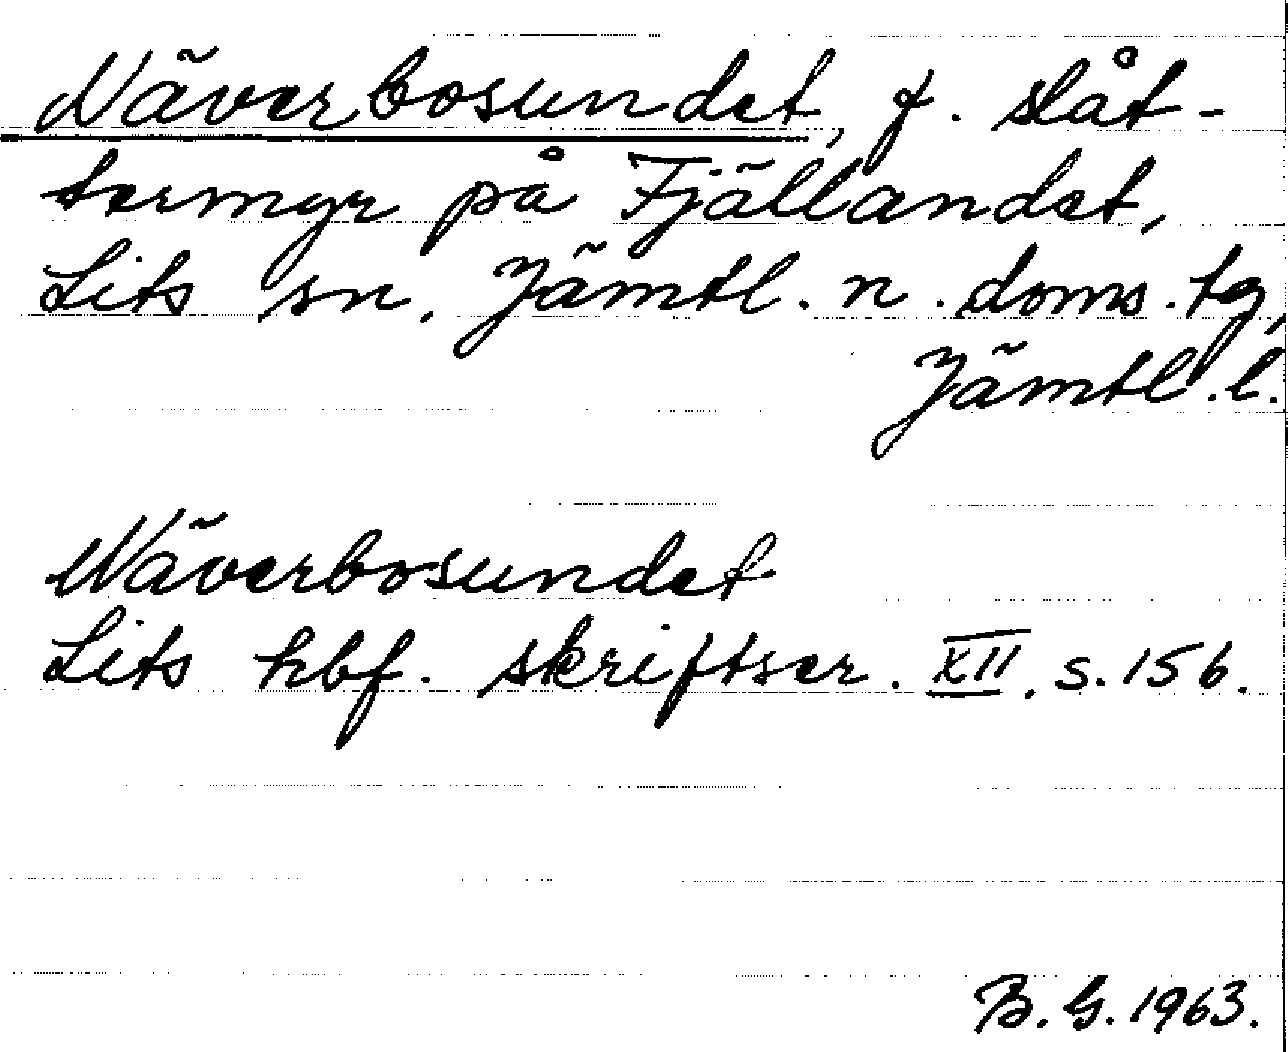 Näverbosundet, f. slåt-
termyr på Fjällandet,
Lits sn, Jämtl. n. doms. tg,
Jämtl. l.
Näverbosundet
Lits hbf. skriftser. XII. s. 156.
B. G. 1963.